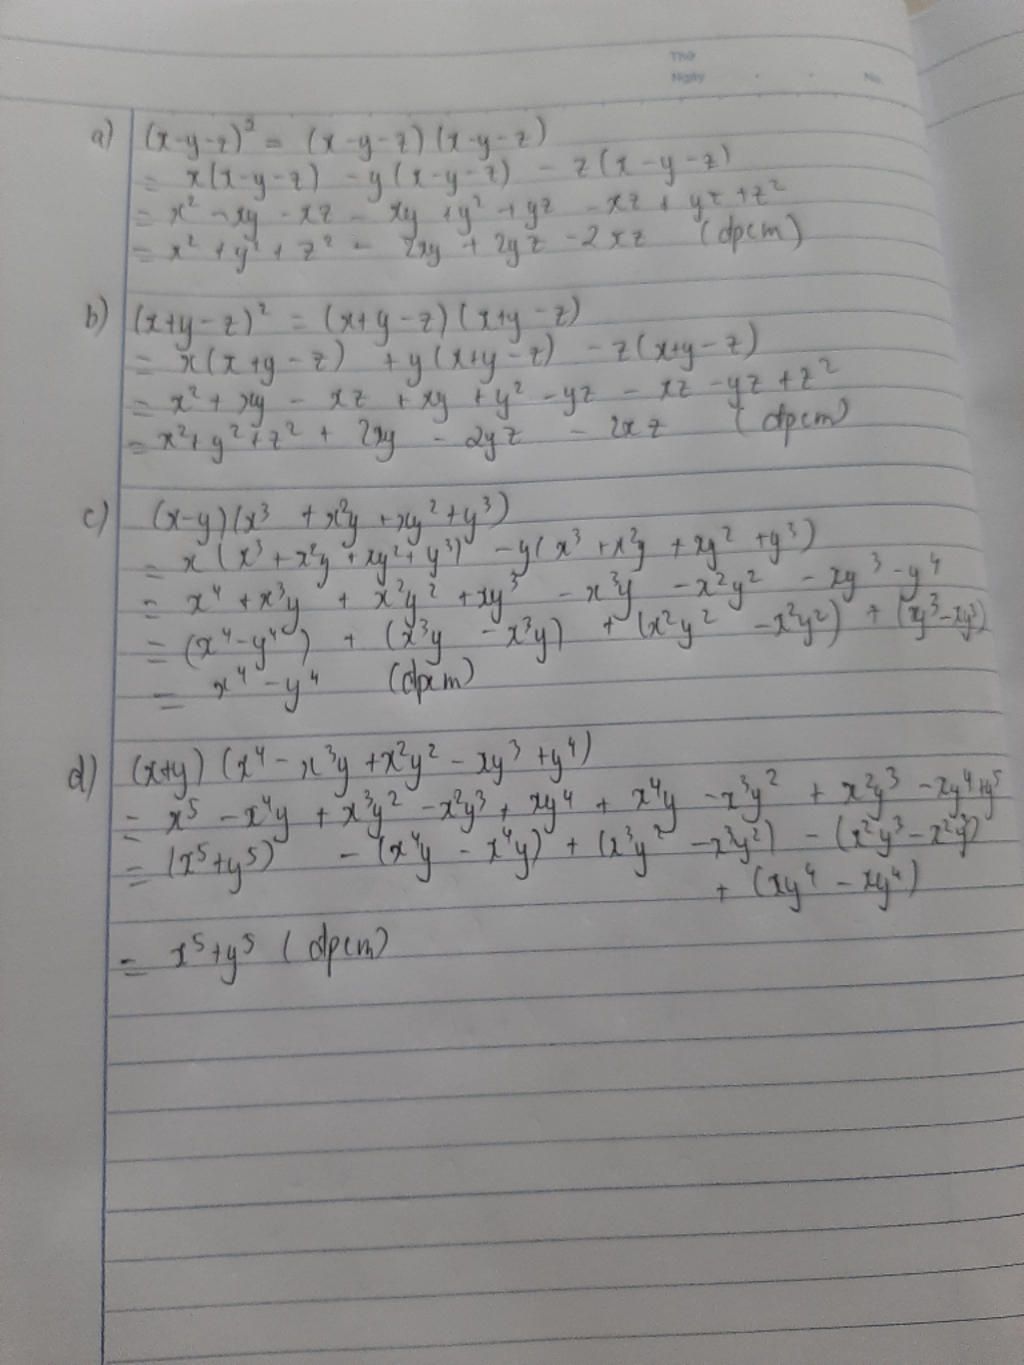 Thứ
Ngày . . No.
a) (x-y-z)² = (x-y-z)(x-y-z)
= x(x-y-z) - y(x-y-z) - z(x-y-z)
= x² - xy - xz - xy + y² + yz - xz + yz + z²
= x² + y² + z² - 2xy + 2yz - 2xz (đpcm)
b) (x+y-z)² = (x+y-z)(x+y-z)
= x(x+y-z) + y(x+y-z) - z(x+y-z)
= x² + xy - xz + xy + y² - yz - xz - yz + z²
= x² + y² + z² + 2xy - 2yz - 2xz (đpcm)
c) (x-y)(x³ + x²y + xy² + y³)
= x(x³ + x²y + xy² + y³) - y(x³ + x²y + xy² + y³)
= x⁴ + x³y + x²y² + xy³ - x³y - x²y² - xy³ - y⁴
= (x⁴-y⁴) + (x³y - x³y) + (x²y² - x²y²) + (xy³-xy³)
= x⁴ - y⁴ (đpcm)
d) (x+y)(x⁴ - x³y + x²y² - xy³ + y⁴)
= x⁵ - x⁴y + x³y² - x²y³ + xy⁴ + x⁴y - x³y² + x²y³ - xy⁴ + y⁵
= (x⁵+y⁵) - (x⁴y - x⁴y) + (x³y² - x³y²) - (x²y³ - x²y³)
+ (xy⁴ - xy⁴)
= x⁵+y⁵ (đpcm)